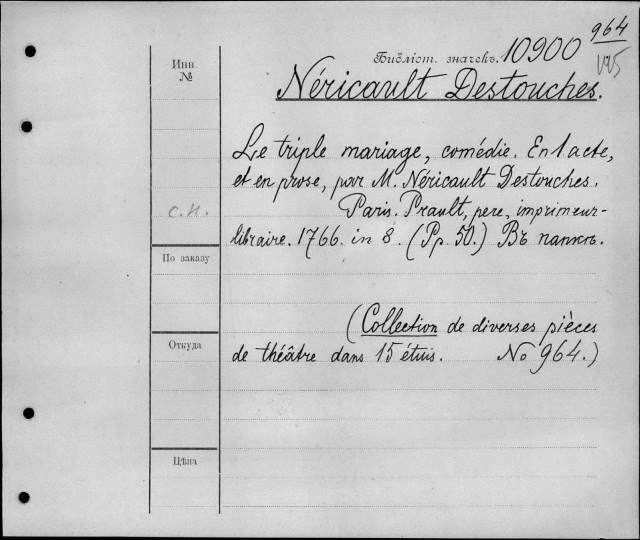 964
Инв. № Библіот. значекъ. 10900
Néricault Destouches.
Le triple mariage, comédie. En 1 acte,
et en prose, par M. Néricault Destouches.
с.н. Paris. Prault, pere, imprimeur-
libraire. 1766. in 8. (Pp. 50.) Въ папкѣ.
По заказу
(Collection de diverses pièces
Откуда de théâtre dans 15 étuis. No 964.)
Цѣна